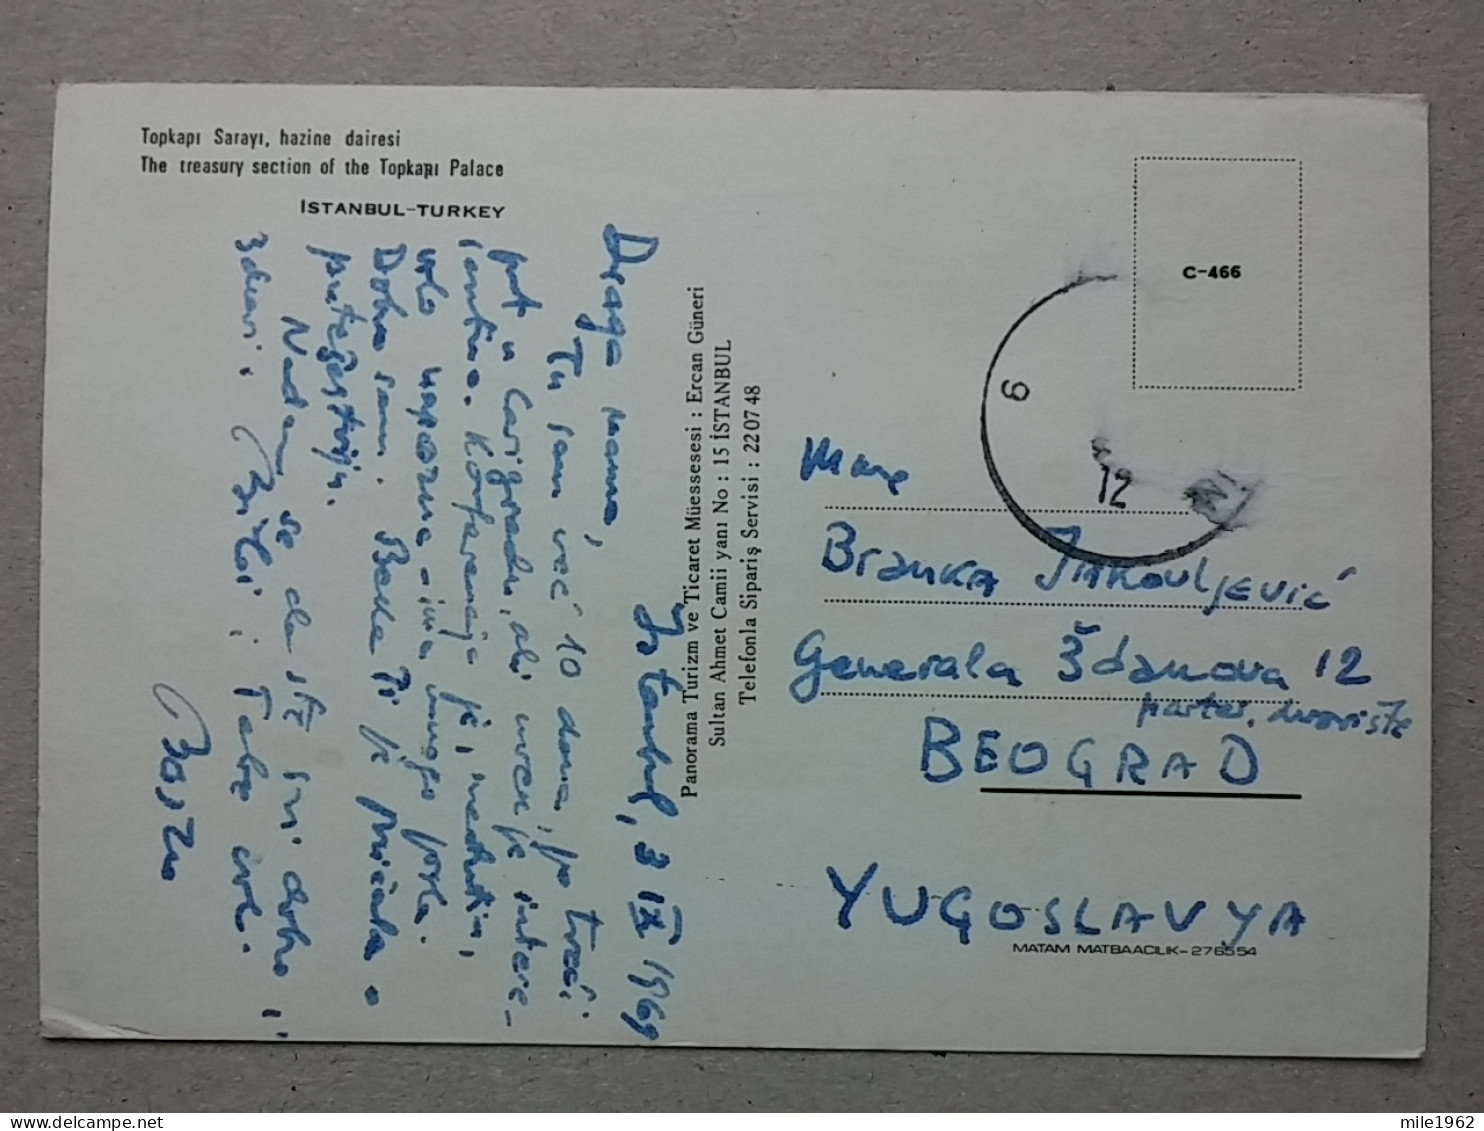 Topkapı Sarayı, hazine dairesi
The treasury section of the Topkapı Palace
ISTANBUL-TURKEY
Istanbul, 3 IX 1969
Draga mama,
Tu sam već 10 dana, po treći
put u Carigradu, ali uvek je intere-
santno. Konferencija je, međutim,
vrlo naporna i ima mnogo posla.
Dobro sam. Beba Ti je pričala o
putešestviju.
Nadam se da ste svi dobro i
zdravi. i Tebe vrlo.
Panorama Turizm ve Ticaret Müessesesi : Ercan Güneri
Sultan Ahmet Camii yanı No : 15 İSTANBUL
Telefonla Sipariş Servisi : 22 07 48
C-466
6
12
Mme
Branka Jakovljević
Generala Ždanova 12
parter, dvorište
BEOGRAD
YUGOSLAVYA
MATAM MATBAACILIK-276554
mile1962